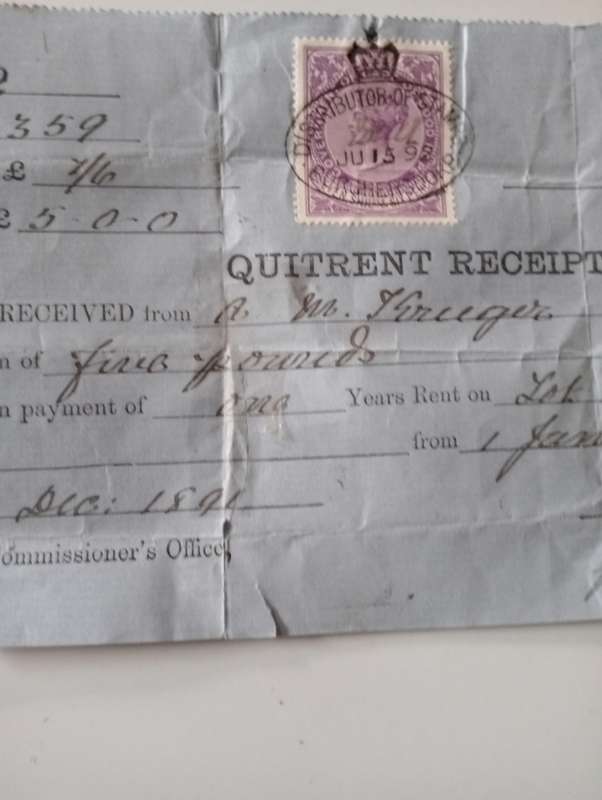 359
£ 7/6
£ 5-0-0
DISTRIBUTOR OF STAMPS
JU 15 9
QUITRENT RECEIPT
RECEIVED from A. M. Kruger
n of five pounds
n payment of one Years Rent on Lot
from 1 Jan
Dec: 1891
ommissioner's Office,